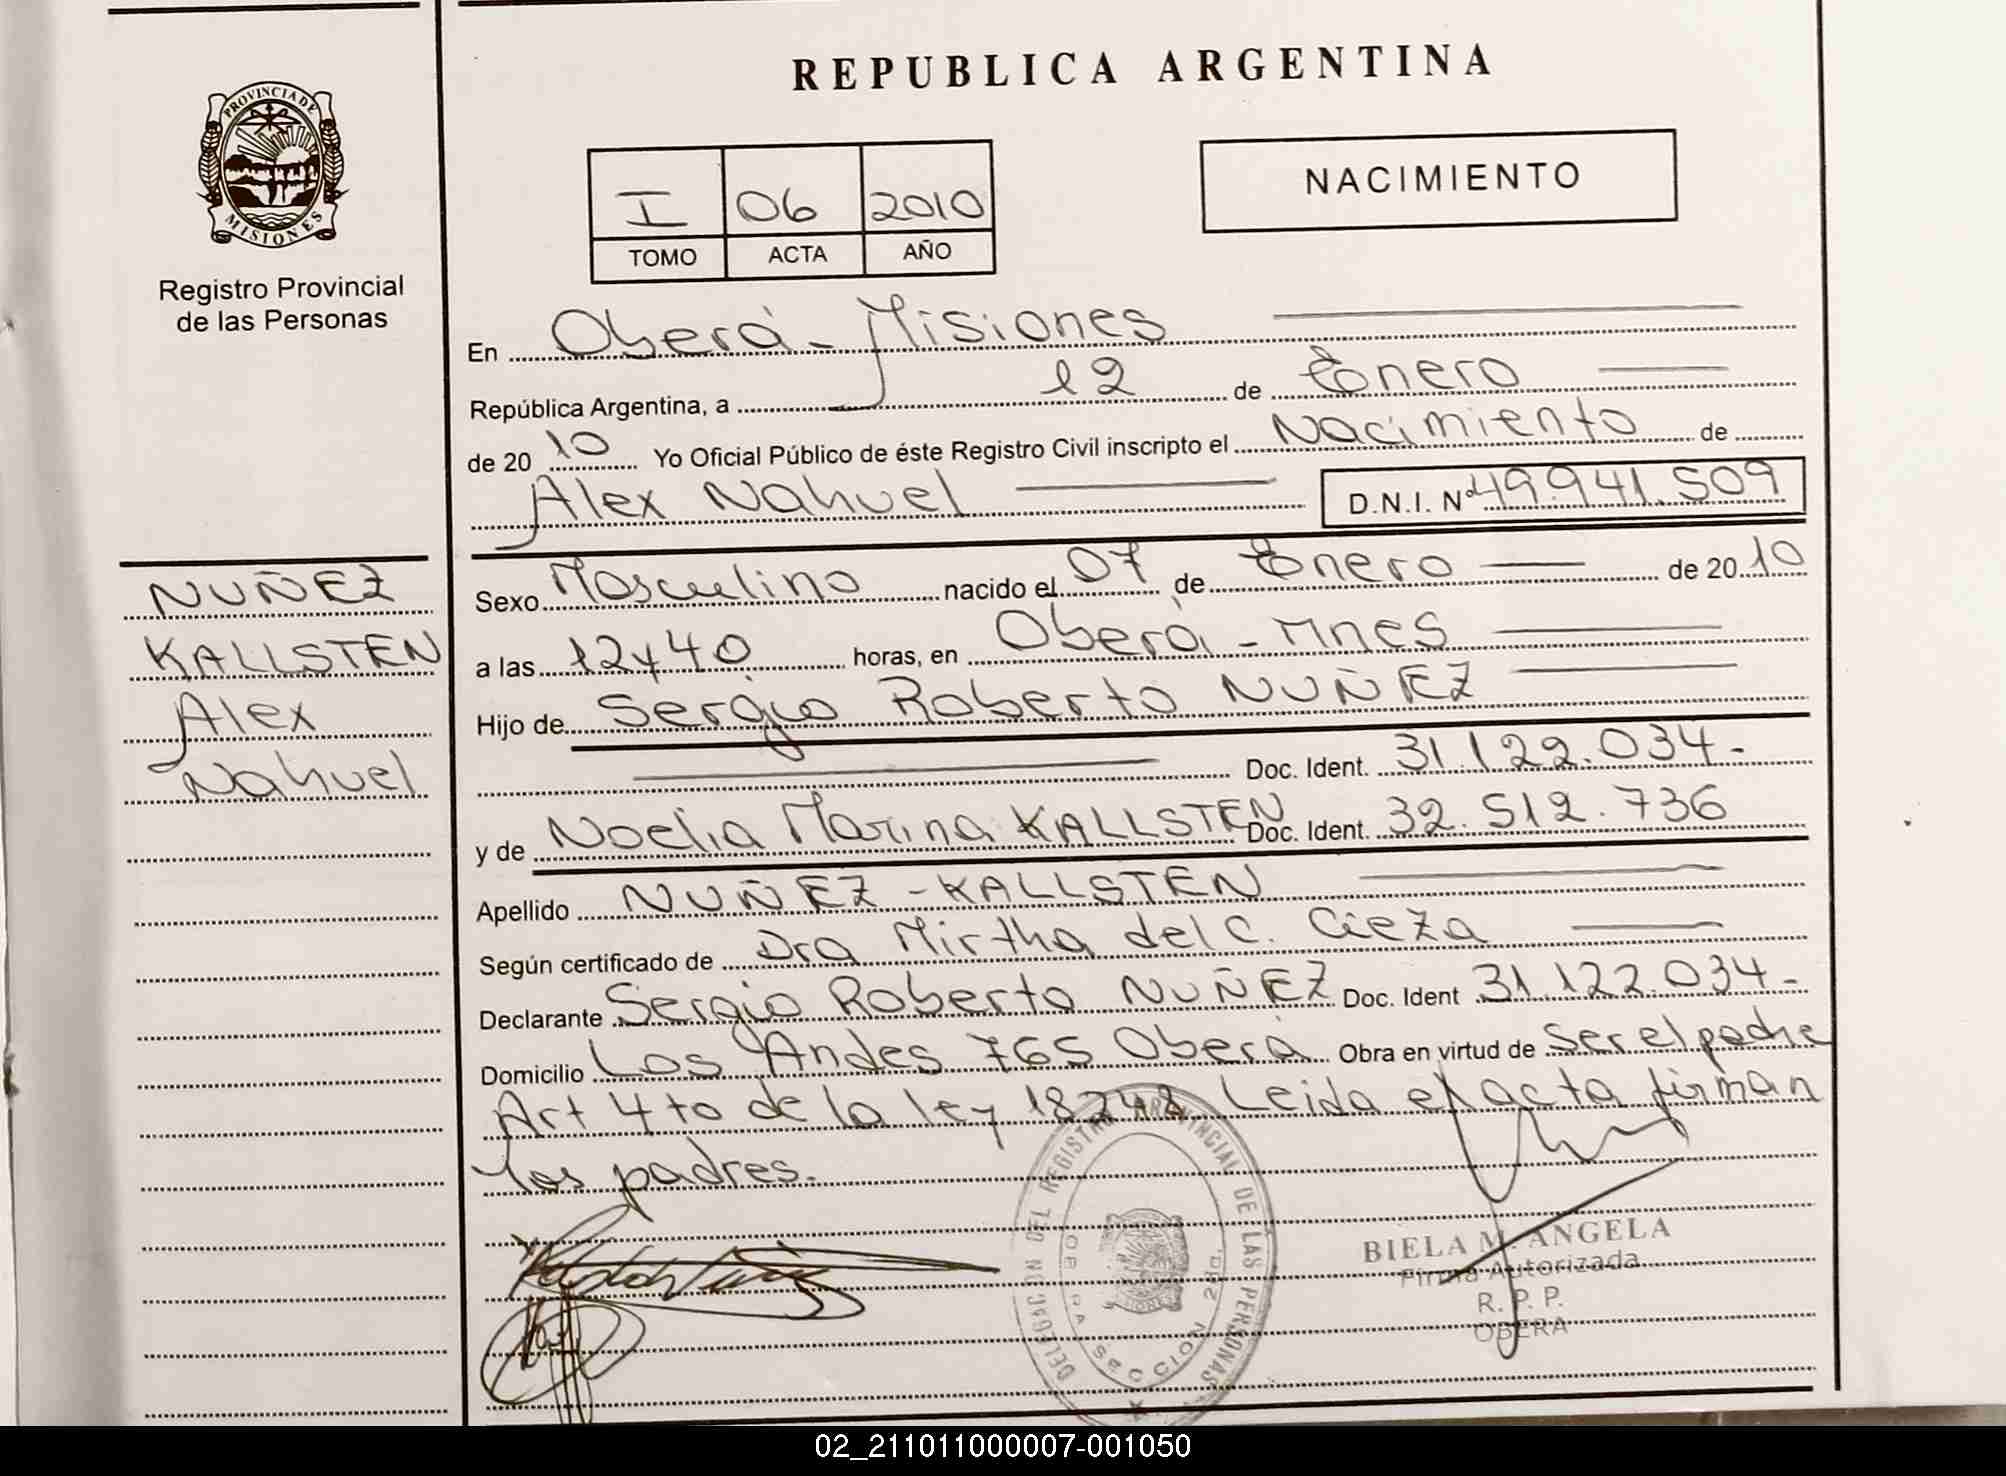 REPUBLICA ARGENTINA
PROVINCIA DE
MISIONES
Registro Provincial
de las Personas
I 06 2010
TOMO ACTA AÑO
NACIMIENTO
En Oberá - Misiones
República Argentina, a 12 de Enero
de 2010 Yo Oficial Público de éste Registro Civil inscripto el Nacimiento de
Alex Nahuel D.N.I. Nº 49.941.509
NUÑEZ
KALLSTEN
Alex
Nahuel
Sexo Masculino nacido el 07 de Enero de 2010
a las 12 y 40 horas, en Oberá - Mnes
Hijo de Sergio Roberto NUÑEZ
Doc. Ident. 31.122.034-
y de Noelia Marina KALLSTEN Doc. Ident. 32.512.736
Apellido NUÑEZ - KALLSTEN
Según certificado de Dra Mirtha del C. Cieza
Declarante Sergio Roberto NUÑEZ Doc. Ident 31.122.034-
Domicilio Los Andes 765 Oberá Obra en virtud de ser el padre
Art 4to de la ley 18248. Leida el acta firman
los padres.
DELEGACION DEL REGISTRO PROVINCIAL DE LAS PERSONAS
OBERA SECCION 2da.
BIELA M. ANGELA
Firma Autorizada
R. P. P.
OBERA
02_211011000007-001050